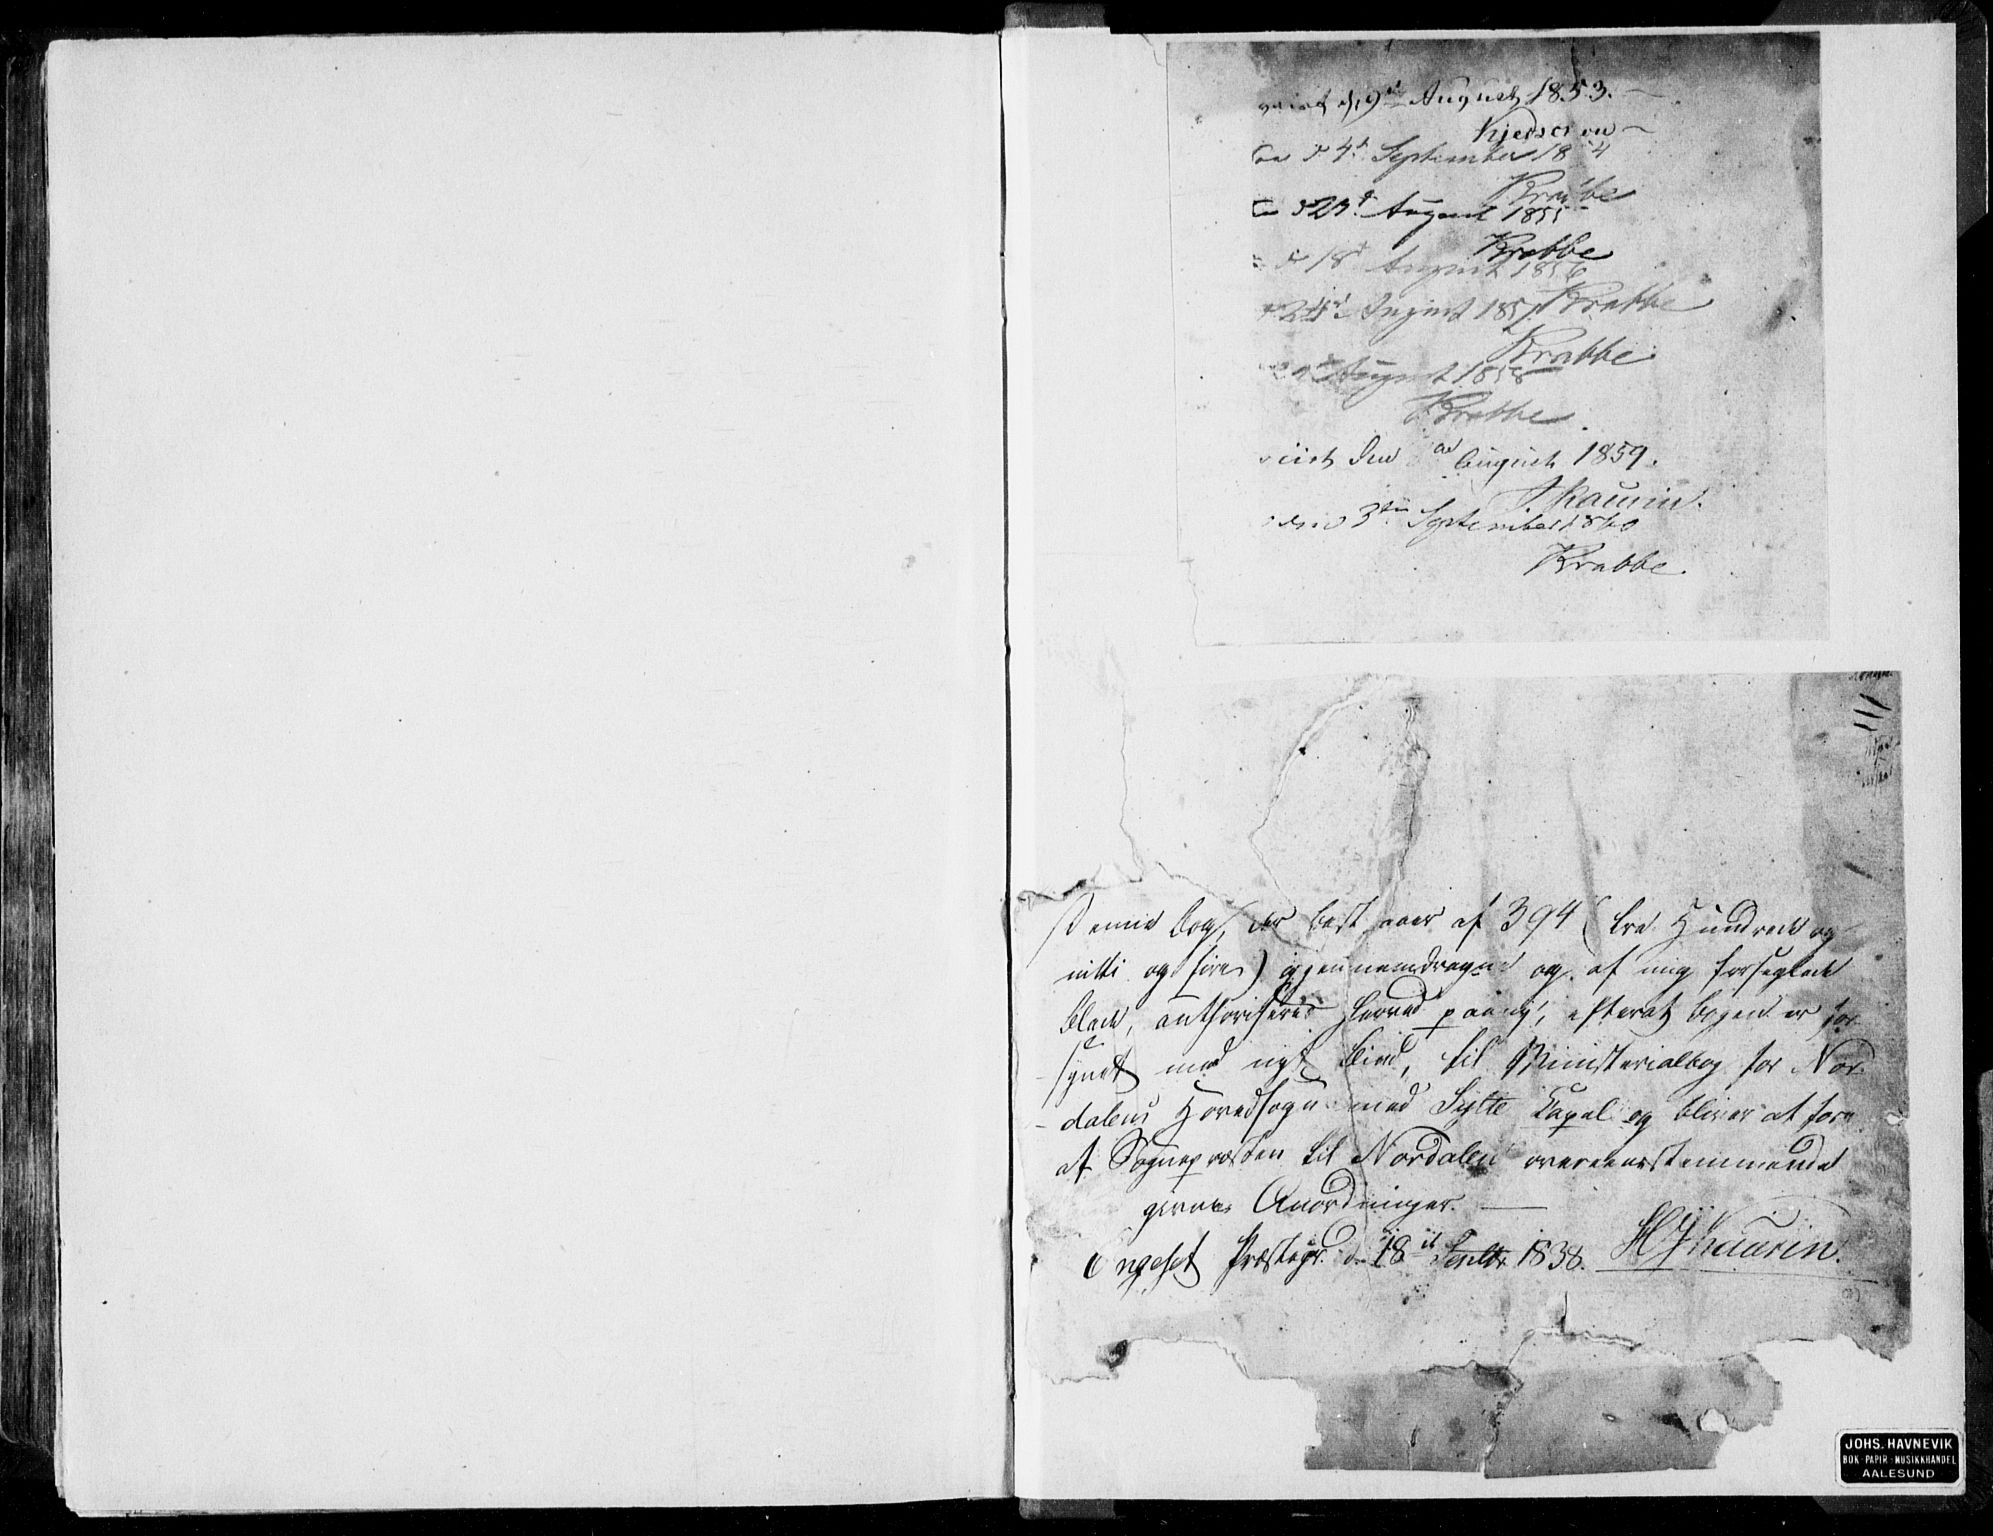 9de August 1853.
Kjerschou
4de September 18 4
Krabbe
August 1855
Krabbe
18de August 1856
August 1857 Krabbe
Krabbe
August 1858
Krabbe
den August 1859.
Kaurin.
3die September 1860
Krabbe.
Denne Bog, der bestaaer af 394 (tre Hundrede og
nitti og fire) igjennemdragne og af mig forseglede
Blade, authoriseres herved paany, efterat Bogen er for-
synet med nyt Bind, til Ministerialbog for Nor-
dalens Hovedsogn med Sylte Capel og bliver at føre
af Sognepræsten til Nordalen overeensstemmende
givne Anordninger. —
Præstegr. d. 18de 1838. Kaurin.
JOHS. HAVNEVIK
BOK - PAPIR - MUSIKKHANDEL
AALESUND